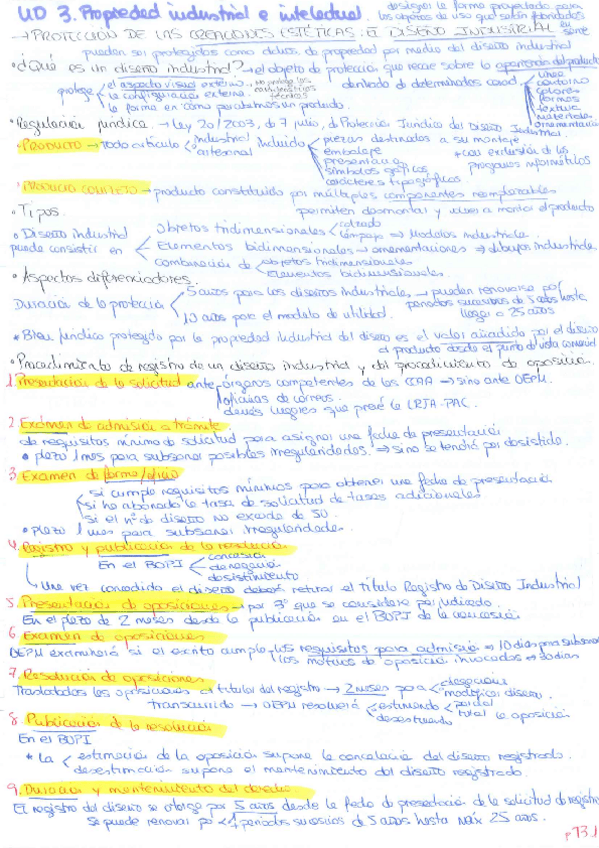 UD 3. Propiedad industrial e intelectual.
designa la forma proyectada para
los objetos de uso que serán fabricados
en serie
→ PROTECCIÓN DE LAS CREACIONES ESTÉTICAS: EL DISEÑO INDUSTRIAL
pueden ser protegidos como dchos. de propiedad por medio del diseño industrial
• ¿Qué es un diseño industrial? → el objeto de protección que recae sobre la apariencia del producto
derivado de determinadas caract.
línea
contorno
colores
formas
textura
materiales
ornamentación
protege
el aspecto visual externo
la configuración externa
la forma en cómo percibimos un producto.
No protege las
características
técnicas
• Regulación jurídica. → Ley 20/2003, de 7 julio, de Protección Jurídica del Diseño Industrial.
• PRODUCTO → Todo artículo
industrial
artesanal
incluido
piezas destinadas a su montaje
embalaje
presentación
símbolos gráficos
caracteres tipográficos
* con exclusión de los
programas informáticos
• PRODUCTO COMPLEJO → producto constituido por múltiples componentes reemplazables
permiten desmontar y volver a montar el producto
• Tipos.
• Diseño industrial
puede consistir en
Objetos tridimensionales
calzado
lámpara
⇒ Modelos industriales.
Elementos bidimensionales → ornamentaciones ⇒ dibujos industriales
combinación de
objetos tridimensionales
elementos bidimensionales.
• Aspectos diferenciadores.
Duración de la protección
5 años para los diseños industriales, → pueden renovarse por
periodos sucesivos de 5 años hasta
llegar a 25 años
10 años para el modelo de utilidad.
* Bien jurídico protegido por la propiedad industrial del diseño es el valor añadido por el diseño
al producto desde el punto de vista comercial
• Procedimiento de registro de un diseño industrial y del procedimiento de oposición.
1. Presentación de la solicitud ante
órganos competentes de las CCAA → sino ante OEPM.
oficinas de correos.
demás lugares que prevé la LRJA-PAC.
2. Exámen de admisión a trámite.
de requisitos mínimos de solicitud para asignar una fecha de presentación
• plazo 1 mes para subsanar posibles irregularidades. → sino se tendrá por desistida.
3. Examen de forma/oficio
si cumple requisitos mínimos para obtener una fecha de presentación
si ha abonado la tasa de solicitud de tasas adicionales
si el nº de diseño no excede de 50.
• plazo 1 mes para subsanar irregularidades.
4. Registro y publicación de la resolución
En el BOPI
concesión
denegación
desistimiento
Una vez concedido el diseño deberá retirar el Título Registro de Diseño Industrial
5. Presentación de oposiciones → por 3º que se considere perjudicado.
En el plazo de 2 meses desde la publicación en el BOPI de la concesión
6. Examen de oposiciones
OEPM examinará si el escrito cumple
los requisitos para admisión ⇒ 10 días para subsanar
los motivos de oposición invocados ⇒ 30 días
7. Resolución de oposiciones
Trasladados las oposiciones al titular del registro → 2 meses para
alegación
modificar diseño.
transcurrido → OEPM resolverá
estimando
desestimando
parcial
total
la oposición
8. Publicación de la resolución
En el BOPI
* La
estimación de la oposición supone la cancelación del diseño registrado.
desestimación supone el mantenimiento del diseño registrado.
9. Duración y mantenimiento del derecho
El registro del diseño se otorga por 5 años desde la fecha de presentación de la solicitud de registro
Se puede renovar por 4 periodos sucesivos de 5 años hasta máx 25 años.
p 73.1